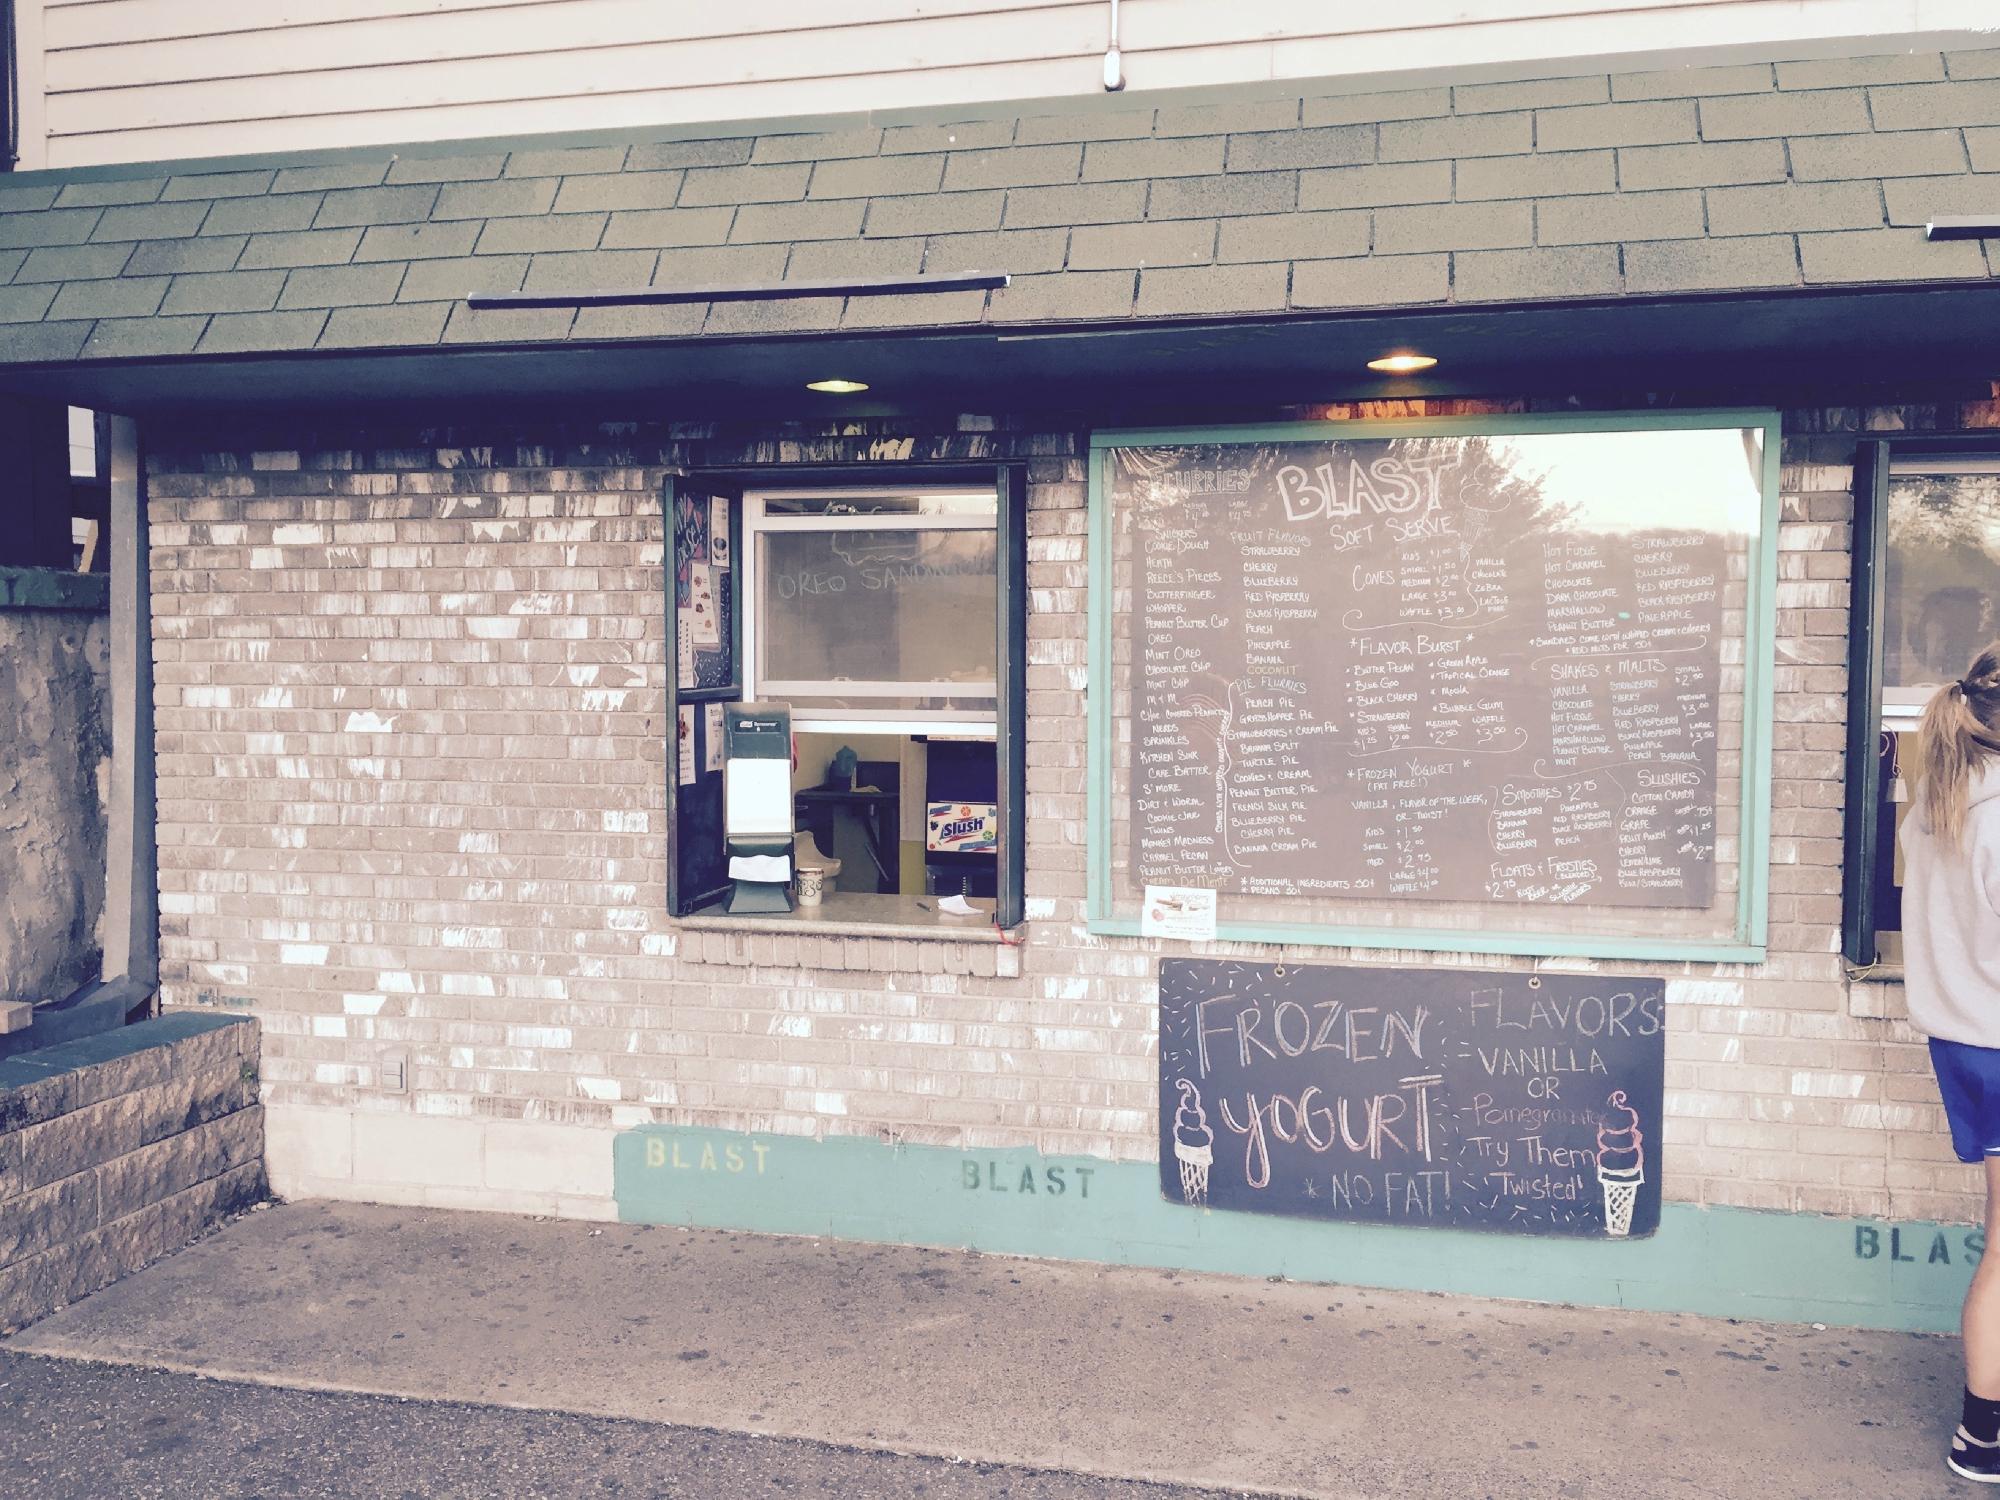 OREO SANDWICH
Slush
FLURRIES
SNICKERS
COOKIE DOUGH
HEATH
REECE'S PIECES
BUTTERFINGER
WHOPPER
PEANUT BUTTER CUP
OREO
MINT OREO
CHOCOLATE CHIP
MINT CHIP
M & M
CHOC COVERED PEANUTS
NERDS
SPRINKLES
KITCHEN SINK
CAKE BATTER
S'MORE
DIRT & WORM
COOKIE JAR
TWINS
MONKEY MADNESS
CARMEL PECAN
PEANUT BUTTER LOVERS
CREAM DE MENTE
FRUIT FLAVORS
STRAWBERRY
CHERRY
BLUEBERRY
RED RASPBERRY
BLACK RASPBERRY
PEACH
PINEAPPLE
BANANA
COCONUT
PIE FLURRIES
PEACH PIE
GRASSHOPPER PIE
STRAWBERRIES & CREAM PIE
BANANA SPLIT
TURTLE PIE
COOKIES & CREAM
PEANUT BUTTER PIE
FRENCH SILK PIE
BLUEBERRY PIE
CHERRY PIE
BANANA CREAM PIE
* ADDITIONAL INGREDIENTS .50¢
* PECANS .50¢
BLAST
SOFT SERVE
CONES
KIDS $1.00
SMALL $1.50
MEDIUM $2.00
LARGE $3.00
WAFFLE $3.00
VANILLA
CHOCOLATE
ZEBRA
*FLAVOR BURST*
* BUTTER PECAN
* BLUE GOO
* BLACK CHERRY
* STRAWBERRY
* GREEN APPLE
* TROPICAL ORANGE
* MOCHA
* BUBBLE GUM
KIDS SMALL MEDIUM WAFFLE
$1.25 $2.00 $2.50 $3.50
*FROZEN YOGURT*
(FAT FREE!)
VANILLA, FLAVOR OF THE WEEK,
OR TWIST!
KIDS $1.50
SMALL $2.00
MED $2.75
LARGE $4.00
WAFFLE $4.00
HOT FUDGE
HOT CARAMEL
CHOCOLATE
DARK CHOCOLATE
MARSHALLOW
PEANUT BUTTER
STRAWBERRY
CHERRY
BLUEBERRY
RED RASPBERRY
BLACK RASPBERRY
PINEAPPLE
*SUNDAES COME WITH WHIPPED CREAM & CHERRY
* ADD NUTS FOR .50¢
SHAKES & MALTS
VANILLA
CHOCOLATE
HOT FUDGE
HOT CARAMEL
MARSHMALLOW
PEANUT BUTTER
MINT
STRAWBERRY
CHERRY
BLUEBERRY
RED RASPBERRY
BLACK RASPBERRY
PINEAPPLE
PEACH BANANA
SMALL
$2.50
MEDIUM
$3.00
LARGE
$3.50
SMOOTHIES $2.95
STRAWBERRY
BANANA
CHERRY
BLUEBERRY
PINEAPPLE
RED RASPBERRY
BLACK RASPBERRY
PEACH
SLUSHIES
COTTON CANDY
ORANGE
GRAPE
FRUIT PUNCH
CHERRY
LEMON/LIME
BLUE RASPBERRY
KIWI/STRAWBERRY
FLOATS & FROSTIES
$2.75
FROZEN
YOGURT
* NO FAT!
FLAVORS:
- VANILLA
OR
- Pomegranate
Try Them
Twisted!
BLAST
BLAST
BLAS